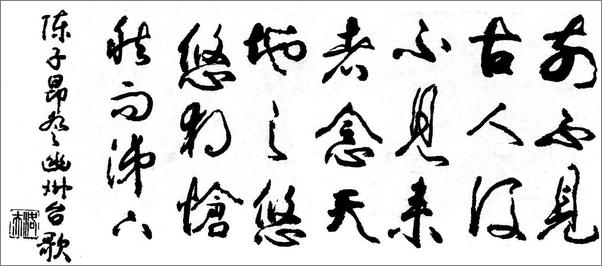 前不見
古人後
不見来
者念天
地之悠
悠独愴
然而涕下
陈子昂登幽州台歌